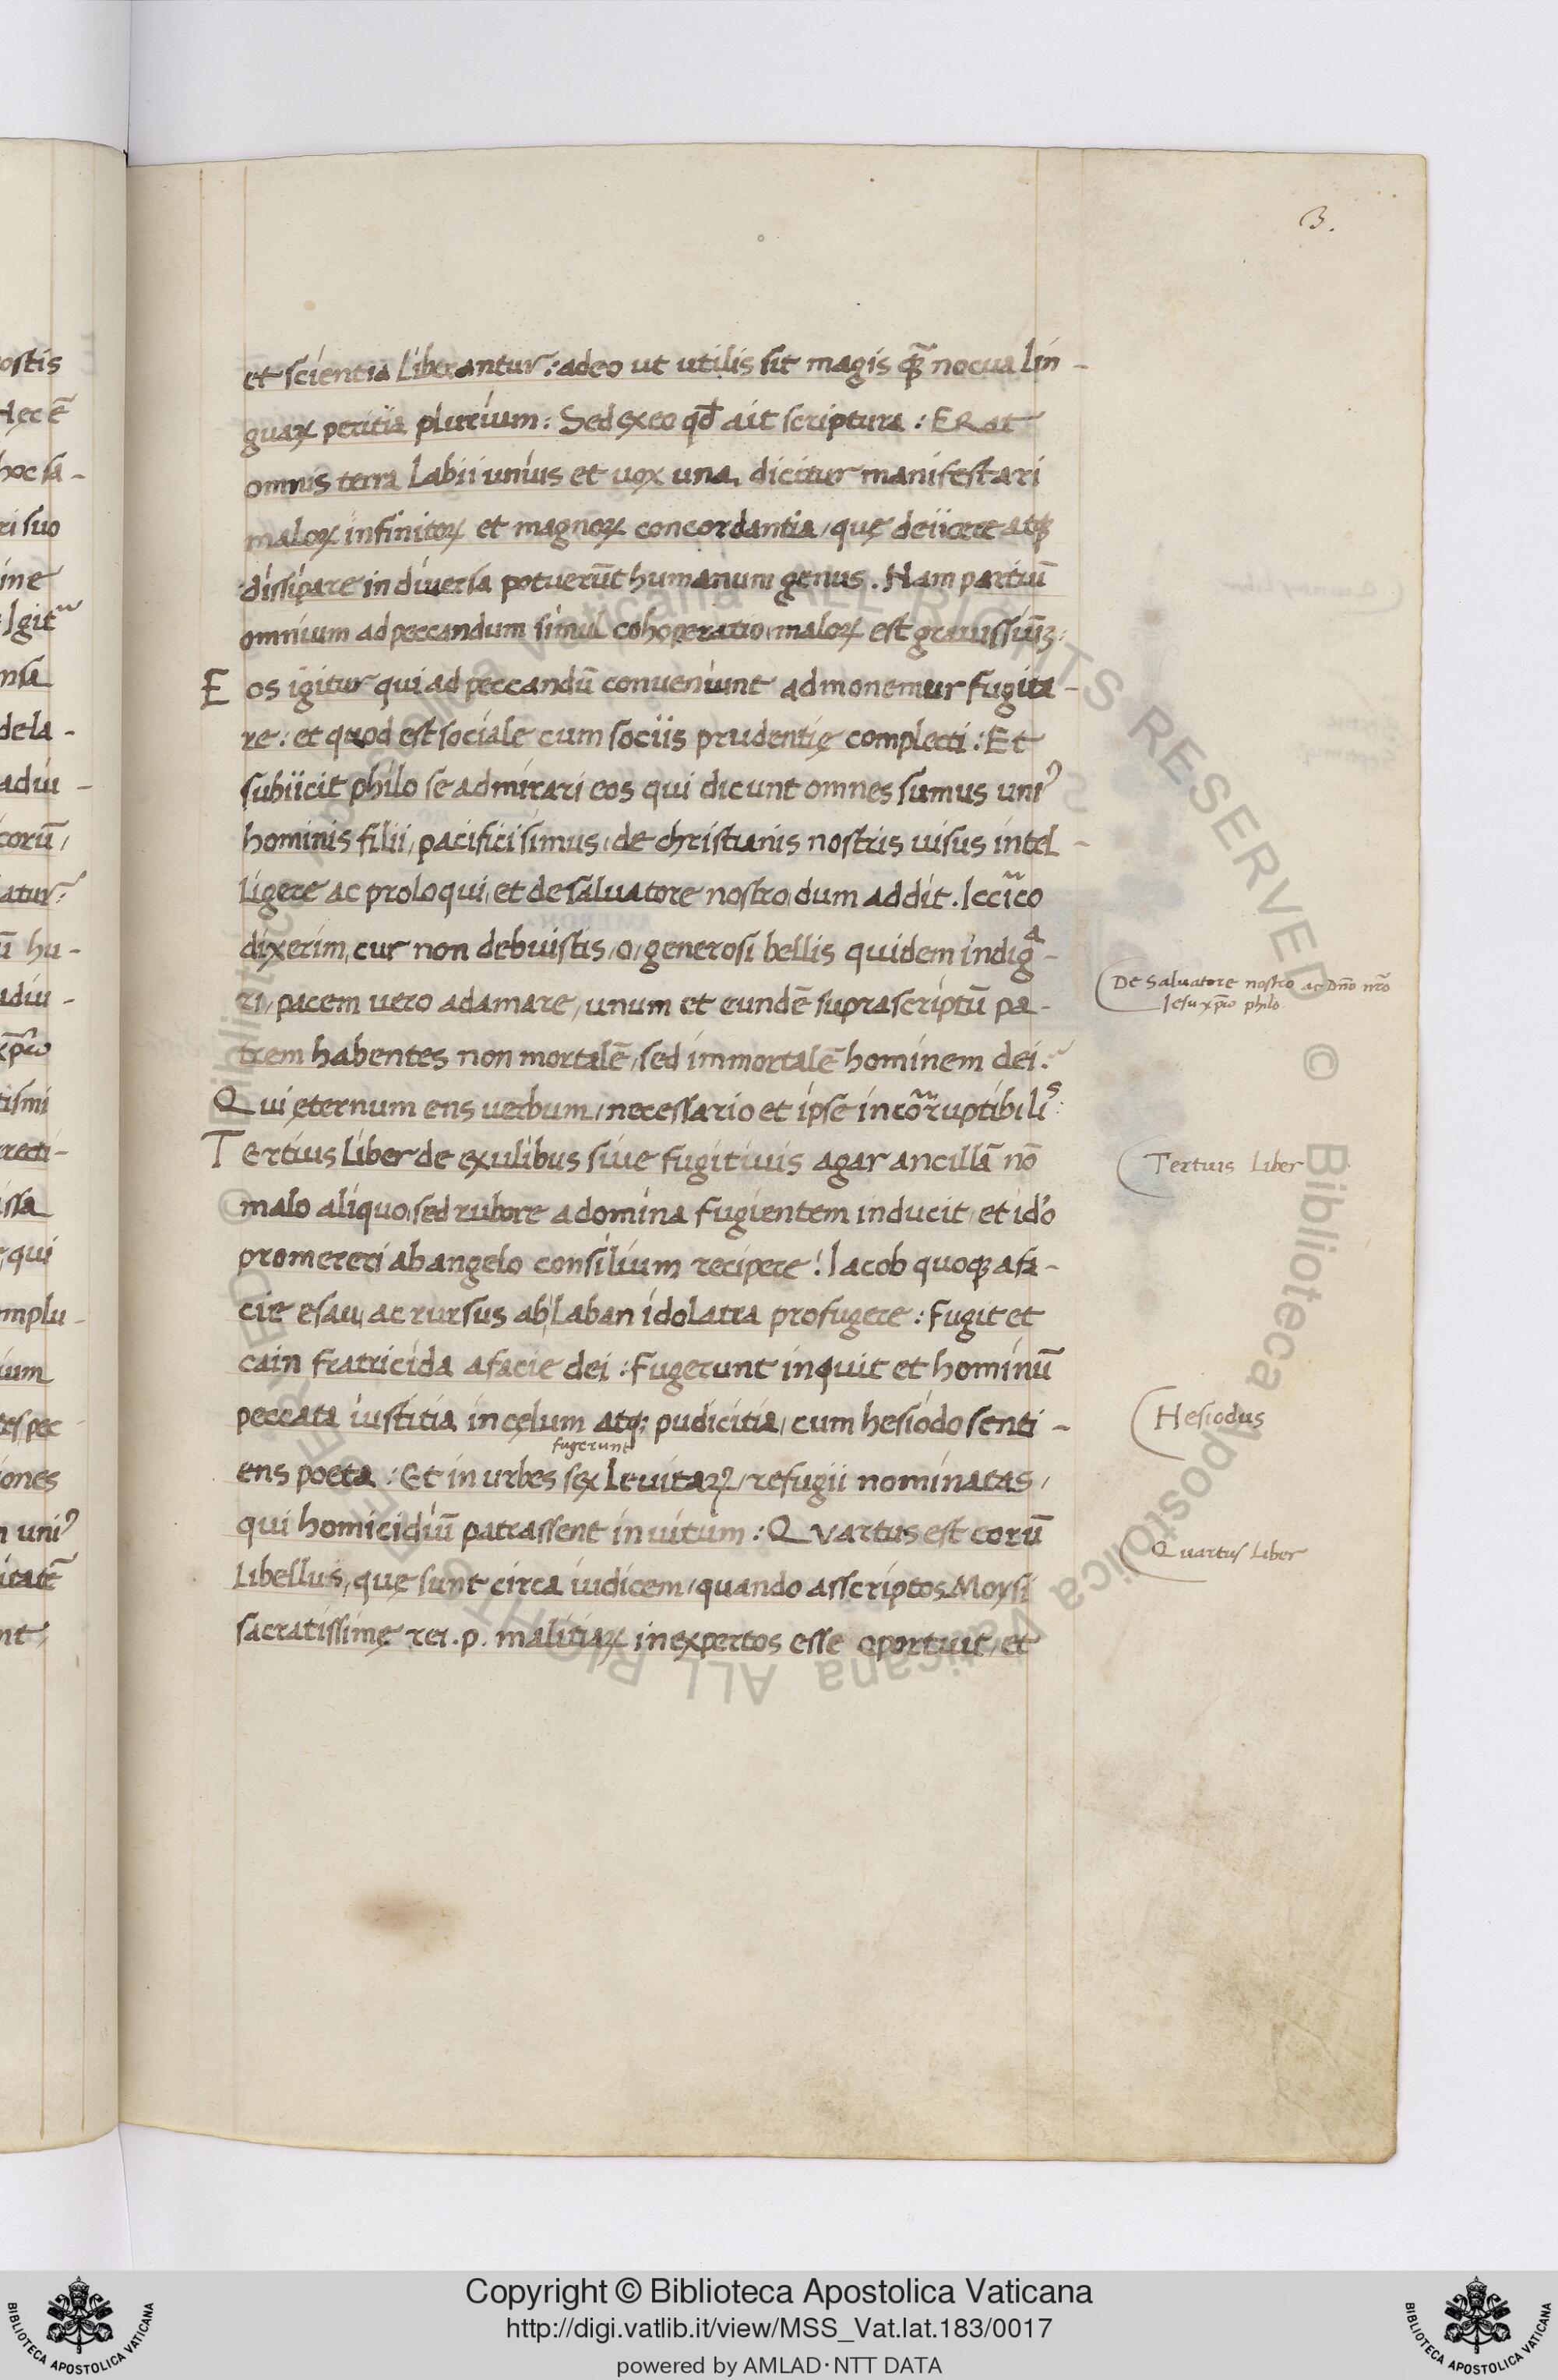 3.
et scientia Liberantur: adeo ut utilis sit magis q̃ꝫ nocua lin-
guaꝝ peritia plurium: Sed ex eo qđ ait scriptura: ERat
omnis terra Labii unius et uox una, dicitur manifestari
maloꝝ infinitoꝝ et magnoꝝ concordantia, quę deiicere atqꝫ
dissipare in diuersa potuerũt humanum genus. Nam partiũ
omnium ad peccandum simul cohoperatio, maloꝝ est grauissimũꝫ:
Eos igitur qui ad peccandũ conueniunt admonemur fugita-
re: et quod est sociale cum sociis prudentię complecti: Et
subiicit philo se admirari eos qui dicunt omnes sumus uniꝰ
hominis filii, pacificisimus, de christianis nostris uisus intel-
Ligere ac proloqui, et de saluatore nostro, dum addit. Iccĩco
dixerim, cur non debuistis, o, generosi bellis quidem indigᵃ-
ri, pacem uero adamare, unum et eundẽ suprascriptũ pa-
trem habentes non mortalẽ, sed immortalẽ hominem dei:
Qui ęternum ens uerbum, necessario et ipse incõrruptibiliˢ:
Tertius Liber de exulibus siue fugitiuis agar ancillã nõ
malo aliquo, sed rubore a domina fugientem inducit, et id'o
promereri ab angelo consilium recipere! Iacob quoqꝫ a fa-
cie esau, ac rursus ab Laban idolatra profugere: Fugit et
cain fratricida a facie dei: Fugerunt inquit et hominũ
peccata iustitia in cęlum atq; pudicitia, cum hesiodo senti-
fugerunt
ens poeta: Et in urbes sex Leuitaꝝ, refugii nominatas,
qui homicidiũ patrassent inuitum: QVartus est eorũ
Libellus, quę sunt circa iudicem, quando asscriptos Moysi
sacratissimę rei. p. malitiaꝝ inexpertos esse oportuit, et
De Saluatore nostro ac Dño nr̃o
Iesu xp̃o philo.
Tertuis Liber
Hesiodus
Quartus Liber
Copyright © Biblioteca Apostolica Vaticana
http://digi.vatlib.it/view/MSS_Vat.lat.183/0017
powered by AMLAD·NTT DATA
BIBLIOTECA APOSTOLICA VATICANA
BIBLIOTECA APOSTOLICA VATICANA